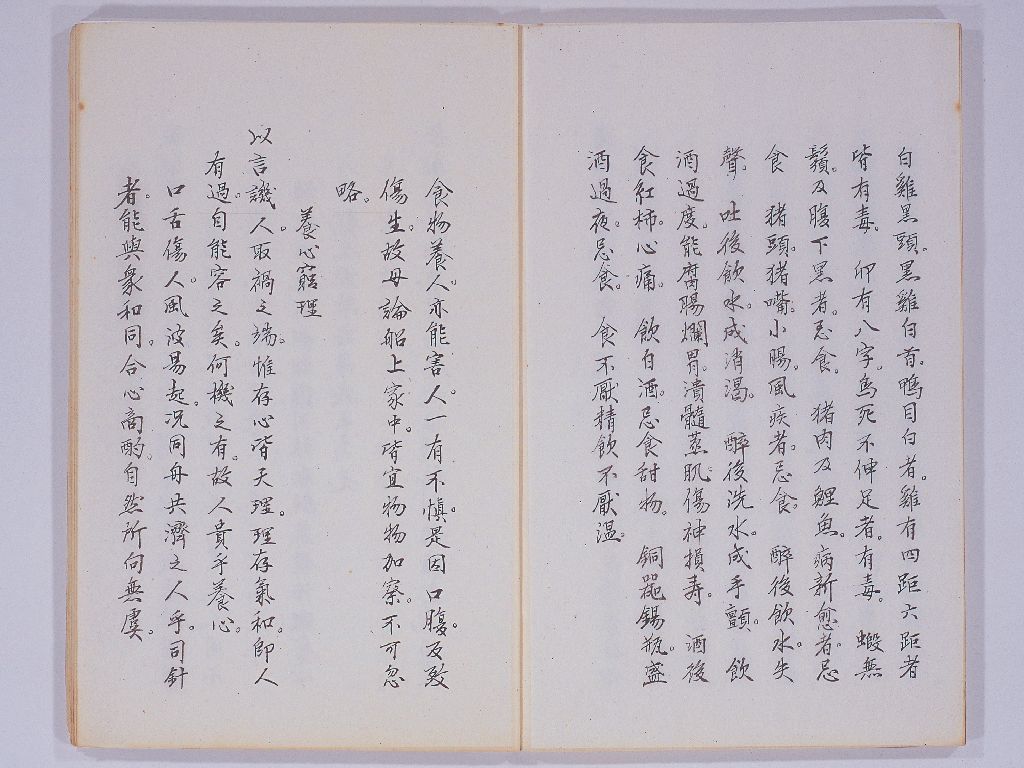 白雞黑頭。黑雞白首。鴨目白者。雞有四距六距者
皆有毒。卵有八字。鳥死不伸足者。有毒。蝦無
鬚。及腹下黑者。忌食。猪肉及鯉魚。病新愈者。忌
食　猪頭。猪嘴。小腸。風疾者。忌食。醉後飲水。失
聲。吐後飲水。成消渴。醉後洗水。成手顫。飲
酒過度。能腐腸爛胃。潰髓蒸肌。傷神損壽。酒後
食紅柿。心痛。飲白酒。忌食甜物。銅器錫瓶。盛
酒過夜。忌食。食不厭精飲不厭溫。
食物養人。亦能害人。一有不慎。是因口腹。反致
傷生。故毋論船上家中。皆宜物物加察。不可忽
略。
養心窮理
以言譏人。取禍之端。惟存心皆天理。理存氣和。即人
有過。自能容之矣。何機之有。故人貴乎養心。
口舌傷人。風波易起。況同舟共濟之人乎。司針
者。能與衆和同。合心商酌。自然所向無虞。